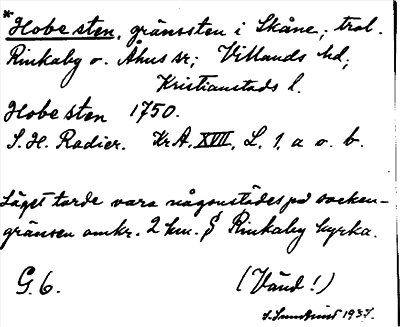 *Hobe sten, gränssten i Skåne; trol.
Rinkaby o. Åhus sr; Villands hd,
Kristianstads l.
Hobe sten 1750.
S. H. Radier. Kr.A. XVII, L. 1, a o. b.
Läget torde vara någonstädes på socken-
gränsen omkr. 2 km. S Rinkaby kyrka.
G. 6.
(Vänd!)
1937.